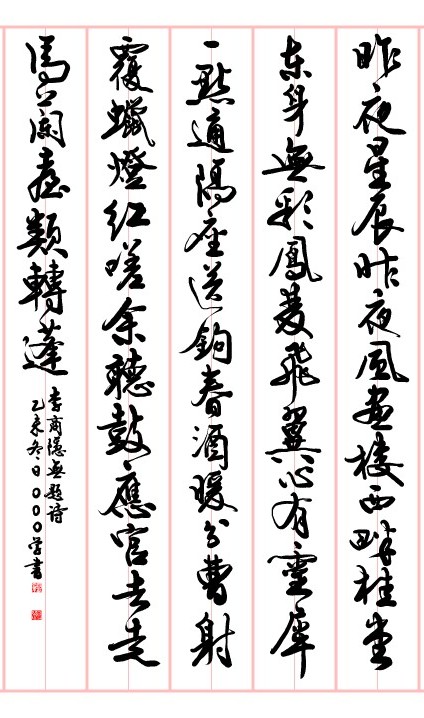 昨夜星辰昨夜風畫楼西畔桂堂
東身無彩鳳雙飛翼心有靈犀
一點通隔座送鉤春酒暖分曹射
覆蠟燈紅嗟余聽鼓應官去走
馬蘭臺類轉蓬
李商隱無題詩
乙未冬日〇〇〇学書